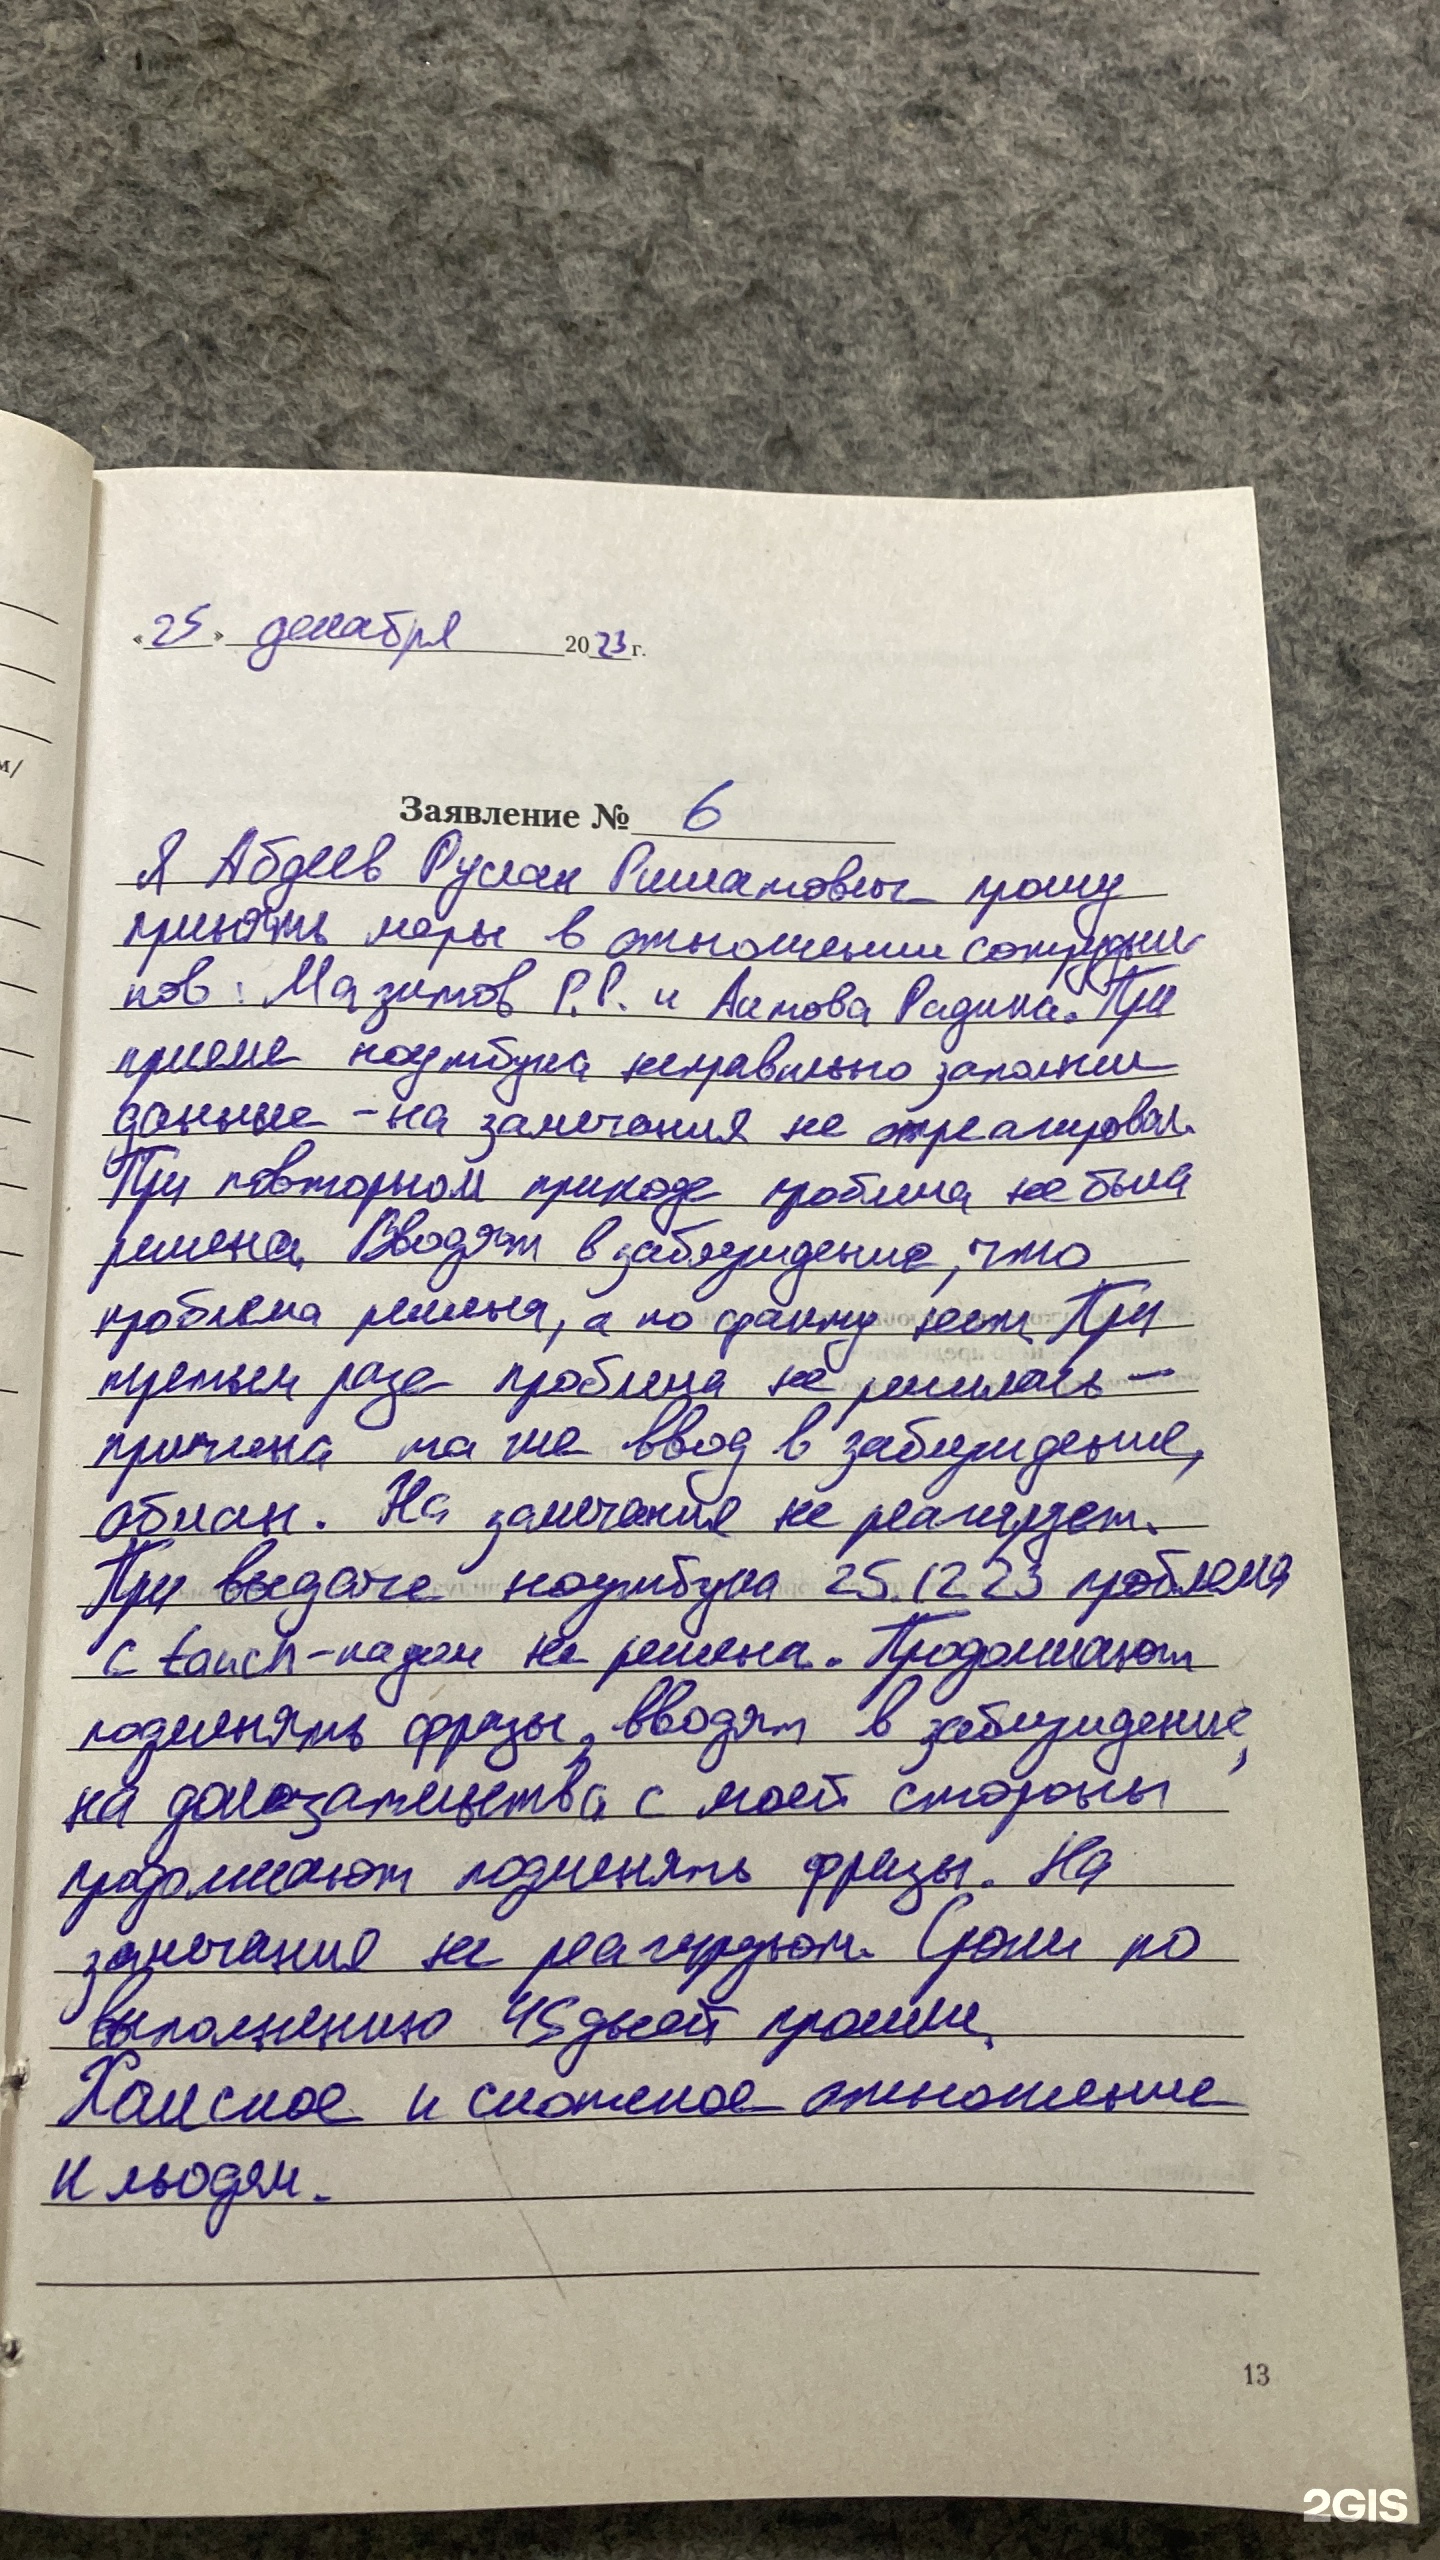 м/
«25» декабря 2023 г.
Заявление № 6
Я Абдеев Руслан Ришатович прошу
принять меры в отношении сотрудни-
ков: Мазитов Р.Р. и Аитова Радика. При
приеме ноутбука неправильно заполнил
данные - на замечания не отреагировал.
При повторном приходе проблема не была
решена. Вводят в заблуждение, что
проблема решена, а по факту нет. При
третьем разе проблема не решилась -
причина та же ввод в заблуждение,
обман. На замечания не реагирует.
При выдаче ноутбука 25.12.23 проблема
с touch-падом не решена. Продолжают
подменять фразы, вводят в заблуждение,
на доказательства с моей стороны
продолжают подменять фразы. На
замечания не реагируют. Сроки по
выполнению 45 дней прошли.
Хамское и скотское отношение
к людям.
13
2GIS